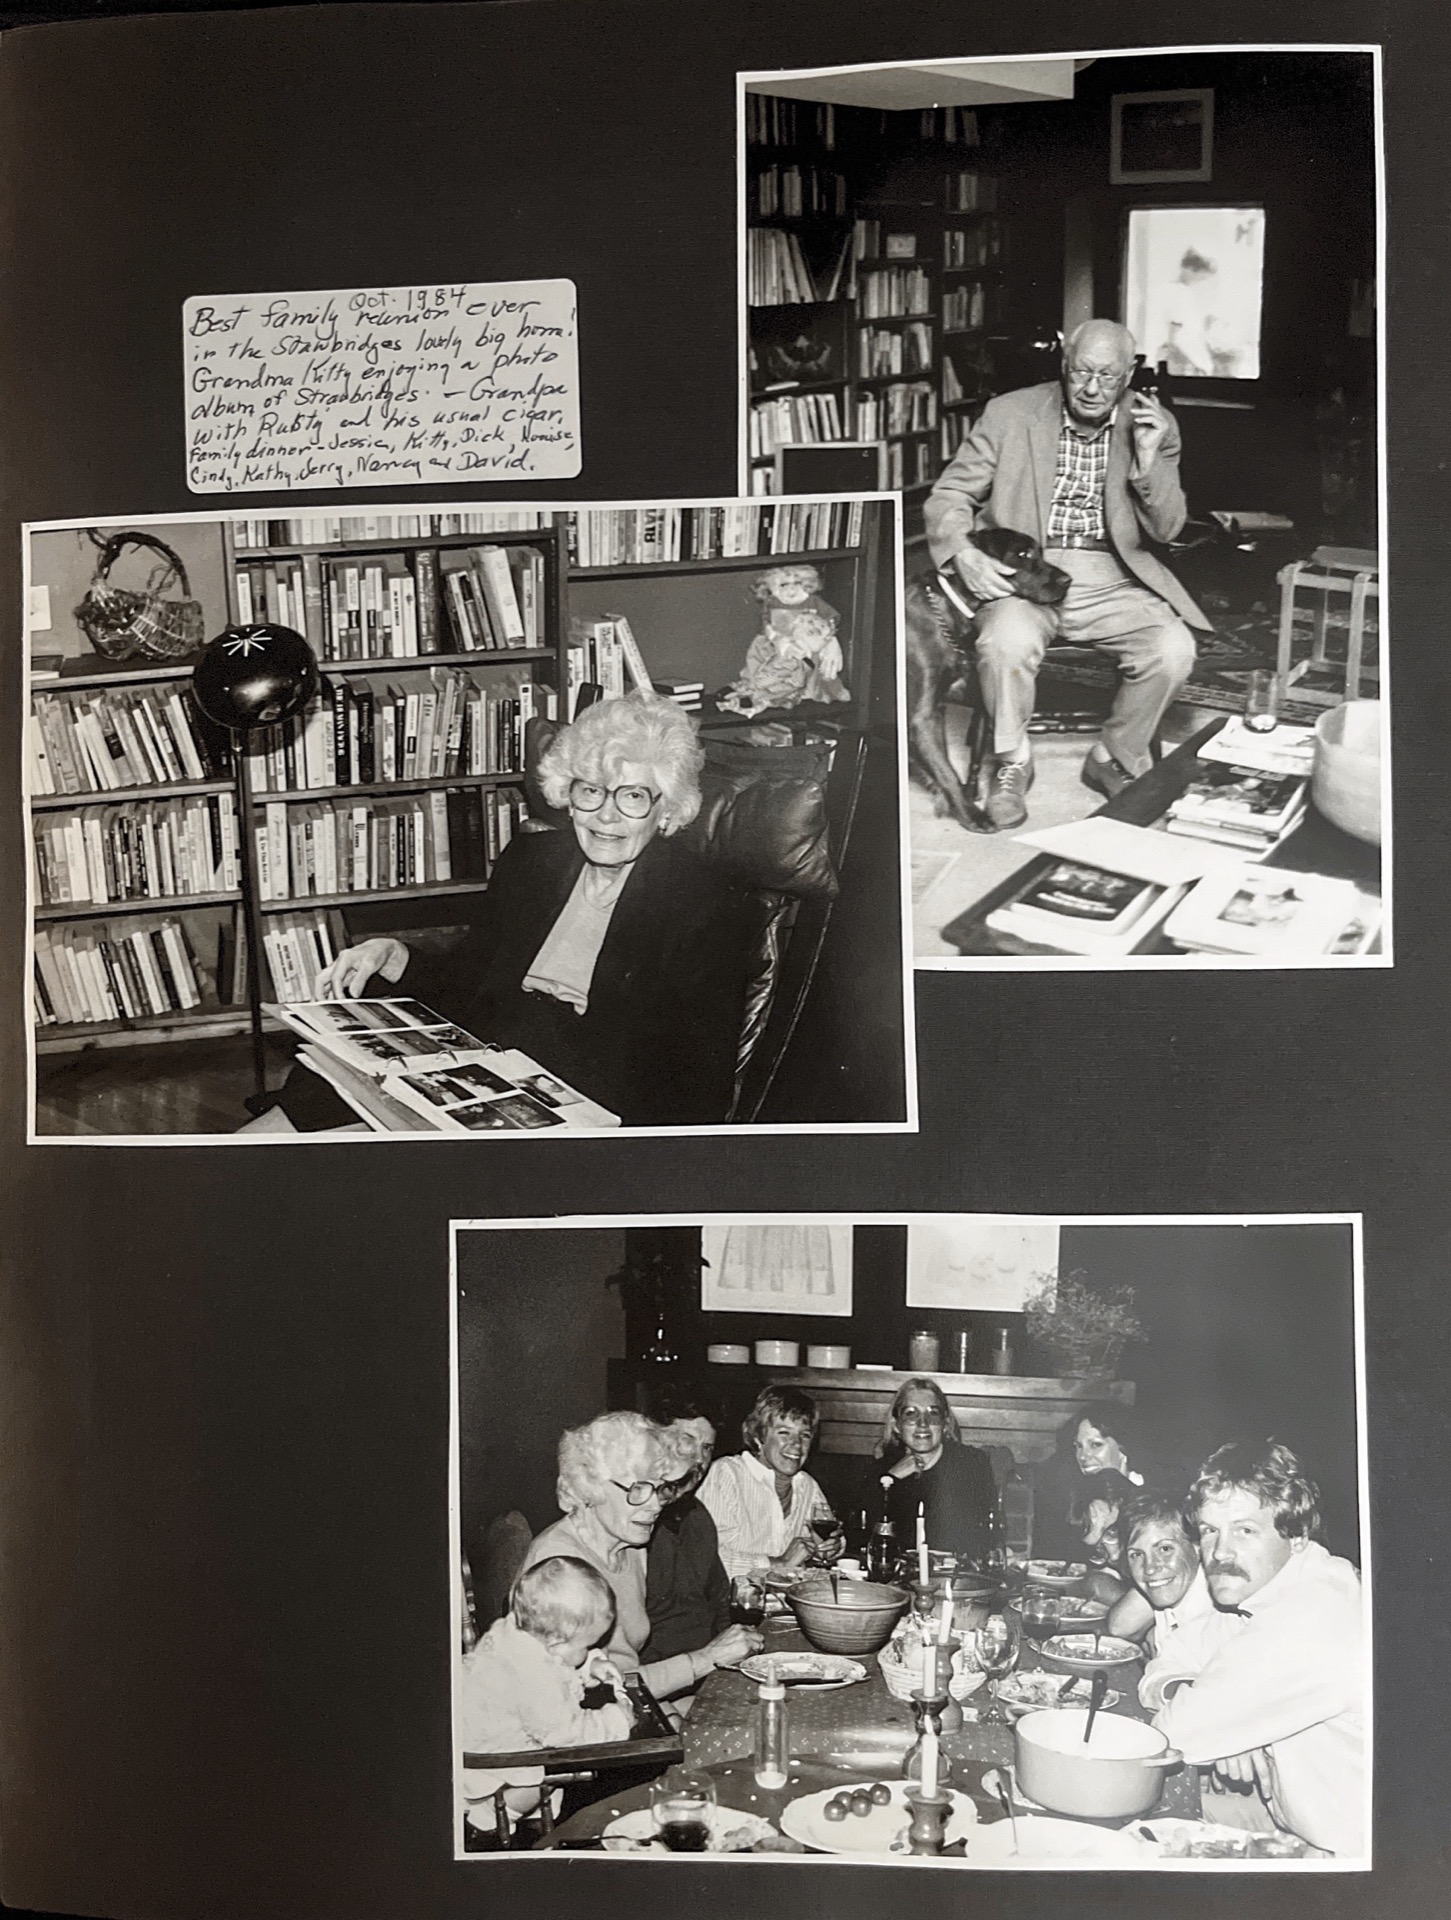 Oct. 1984
Best family reunion ever
in the Stawbridges lovly big home!
Grandma Kitty enjoying a photo
album of Strawbridges. — Grandpa
with Rusty and his usual cigar,
Family dinner - Jessica, Kitty, Dick,
Cindy, Kathy, Jerry, Nancy and David.